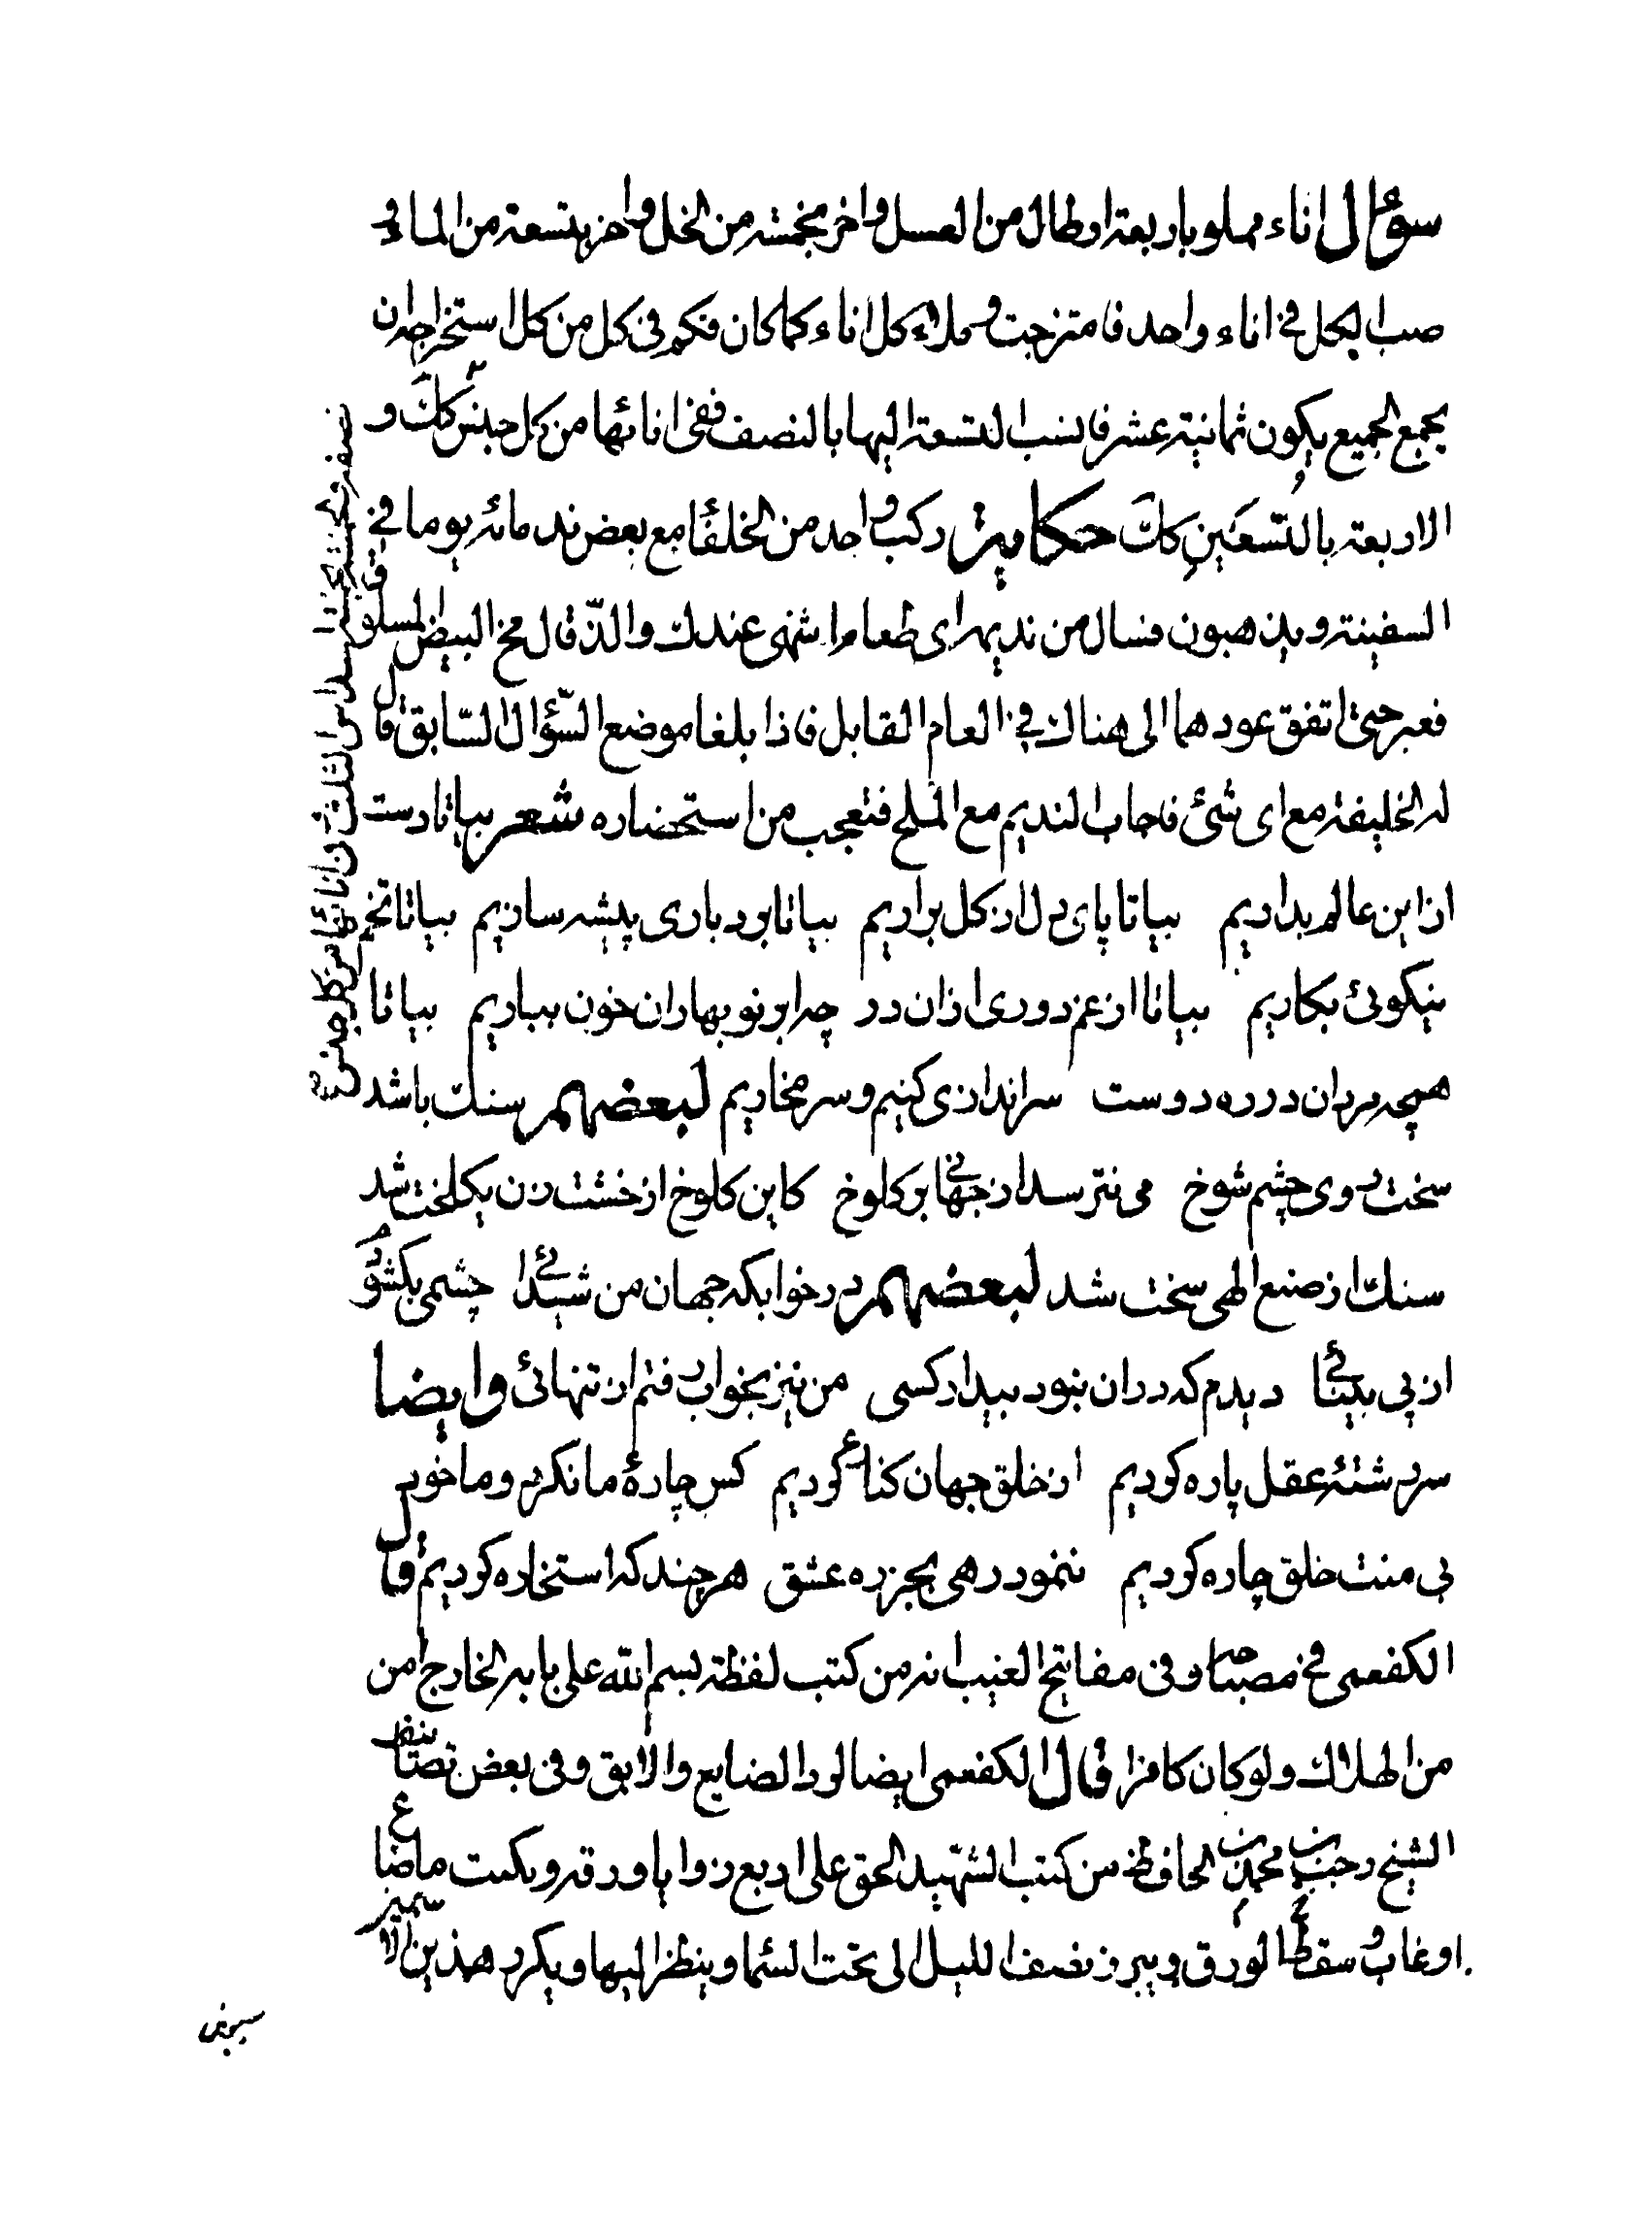 سؤال اناء مملو باربعة ارطال من العسل واخر بخمسة من الخل واخر بتسعة من الماء و
صب الكل في اناء واحد فامتزجت وملاء كل اناء كما كان فكم في كل من كل استخراجه ان
يجمع الجميع يكون ثمانية عشر فانسب التسعة اليها بالنصف ففى انائها من كل جنس كك و
الاربعة بالتسعين كك حكاية ركب واحد من الخلفا مع بعض ندمائه يوما في
السفينة ويذهبون فسال من نديمه اى طعام اشهى عندك والذ قال مخ البيض المسلوق
فعبر حتى اتفق عودهما الى هناك في العام القابل فاذا بلغا موضع السؤال السابق قال
له الخليفة مع اى شئ فاجاب النديم مع الملح فتعجب من استحضاره شعر بيا تا دست
از اين عالم بداريم بيا تا پاى دل از كل براريم بيا تا بردبارى پيشه سازيم بيا تا تخم
نيكوئ بكاريم بيا تا از غم دورى ازان در چه ابر نو بهاران خون بباريم بيا تا
همچه مردان در ره دوست سر اندازى كنيم و سر نخاريم لبعضهم سنك باشد
سخت روى چشم شوخ مى نترسد از جهانى بر كلوخ كاين كلوخ از خشت زن يكلخت شد
سنك از صنع الهى سخت شد لبعضهم در خوابكه جهان من شيدائے چشمى بكشودم
از پى بينائے ديدم كه دران نبود بيدار كسى من نيز بخواب رفتم از تنهائ وايضا
سر رشتۀ عقل پاره كرديم از خلق جهان كناره كرديم كس چارۀ ما نكرد وما خود
بى منت خلق چاره كرديم ننمود رهى بجز ره عشق هر چند كه استخاره كرديم قال
الكفعمى في مصباحه وفى مفاتيح الغيب انه من كتب لفظة بسم الله على بابه الخارج امن
من الهلاك ولو كان كافرا قال الكفعمى ايضا لرد الضايع والابق وفى بعض تصانيف
الشيخ رجب بن محمد بن الحافظ من كتب الشهيد الحق على اربع زوايا ورقه ويكتب ما ضاع
او غاب وسقط الورق ويبرز نصف الليل الى تحت السما وينظر اليها ويكرر هذين الاسمين
ففى خمسة اسداس الثلث فى انائها من كل جنس
سبعين